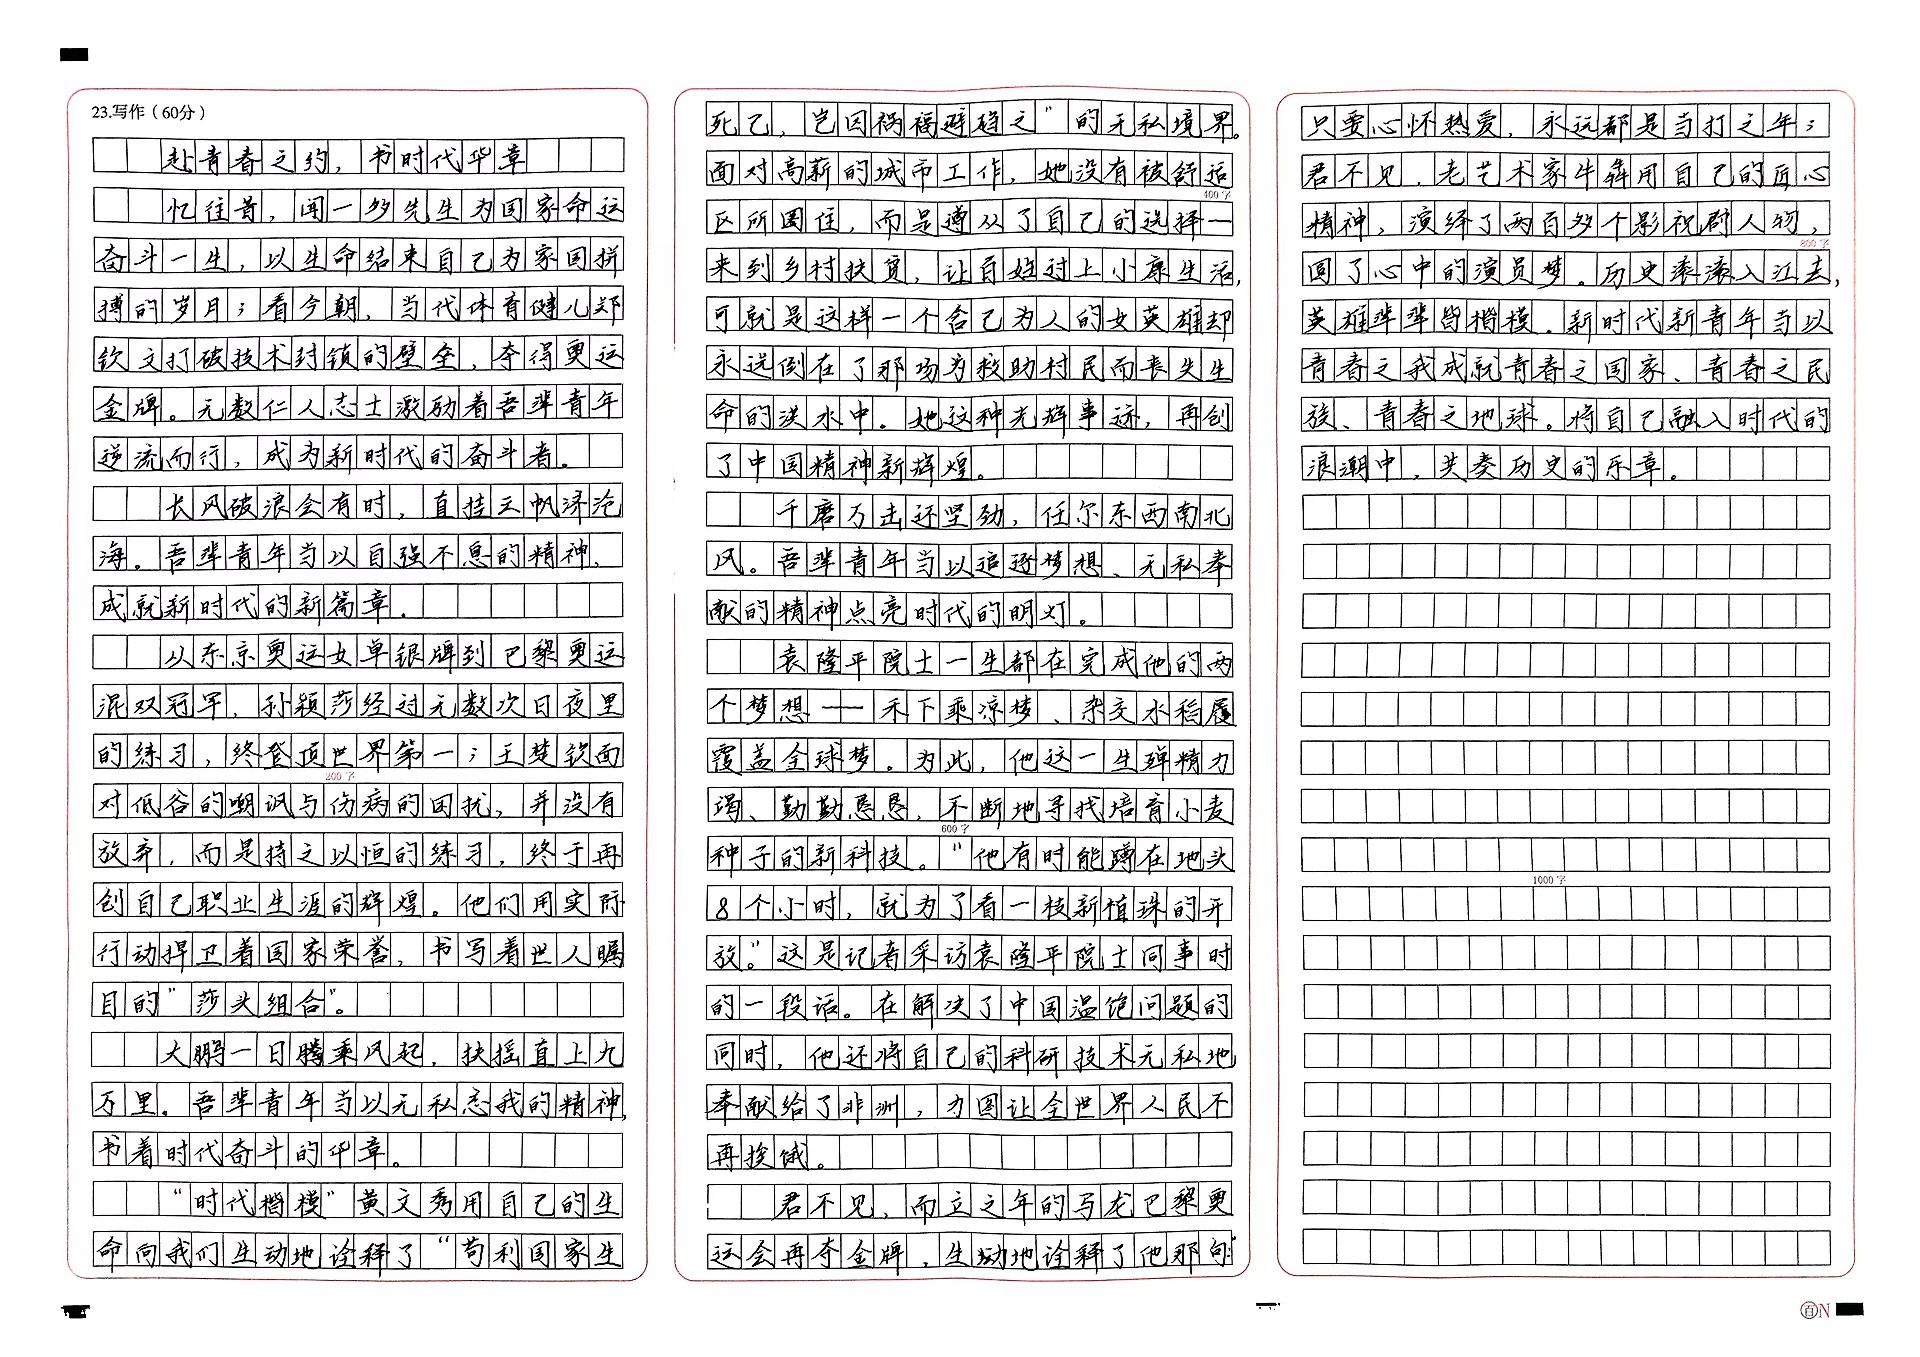 23.写作（60分）
赴青春之约，书时代华章
忆往昔，闻一多先生为国家命运
奋斗一生，以生命结束自己为家国拼
搏的岁月；看今朝，当代体育健儿郑
钦文打破技术封锁的壁垒，夺得奥运
金牌。无数仁人志士激励着吾辈青年
逆流而行，成为新时代的奋斗者。
长风破浪会有时，直挂云帆济沧
海。吾辈青年当以自强不息的精神，
成就新时代的新篇章。
从东京奥运女单银牌到巴黎奥运
混双冠军，孙颖莎经过无数次日夜里
的练习，终登顶世界第一；王楚钦面
200字
对低谷的嘲讽与伤病的困扰，并没有
放弃，而是持之以恒的练习，终于再
创自己职业生涯的辉煌。他们用实际
行动捍卫着国家荣誉，书写着世人瞩
目的“莎头组合”。
大鹏一日腾乘风起，扶摇直上九
万里。吾辈青年当以无私忘我的精神，
书着时代奋斗的华章。
“时代楷模”黄文秀用自己的生
命向我们生动地诠释了“苟利国家生
死已，岂因祸福避趋之”的无私境界。
面对高薪的城市工作，她没有被舒适
400字
区所困住，而是遵从了自己的选择一
来到乡村扶贫，让百姓过上小康生活，
可就是这样一个舍己为人的女英雄却
永远倒在了那场为救助村民而丧失生
命的洪水中。她这种光辉事迹，再创
了中国精神新辉煌。
千磨万击还坚劲，任尔东西南北
风。吾辈青年当以追逐梦想、无私奉
献的精神点亮时代的明灯。
袁隆平院士一生都在完成他的两
个梦想——禾下乘凉梦、杂交水稻履
覆盖全球梦。为此，他这一生殚精力
竭、勤勤恳恳，不断地寻找培育小麦
600字
种子的新科技。“他有时能蹲在地头
8个小时，就为了看一枝新植珠的开
放。”这是记者采访袁隆平院士同事时
的一段话。在解决了中国温饱问题的
同时，他还将自己的科研技术无私地
奉献给了非洲，力图让全世界人民不
再挨饿。
君不见，而立之年的马龙巴黎奥
运会再夺金牌，生动地诠释了他那句：
只要心怀热爱，永远都是当打之年；
君不见，老艺术家牛犇用自己的匠心
精神，演绎了两百多个影视剧人物，
800字
圆了心中的演员梦。历史滚滚入江去，
英雄辈辈皆楷模。新时代新青年当以
青春之我成就青春之国家、青春之民
族、青春之地球。将自己融入时代的
浪潮中，共奏历史的乐章。
1000字
百N